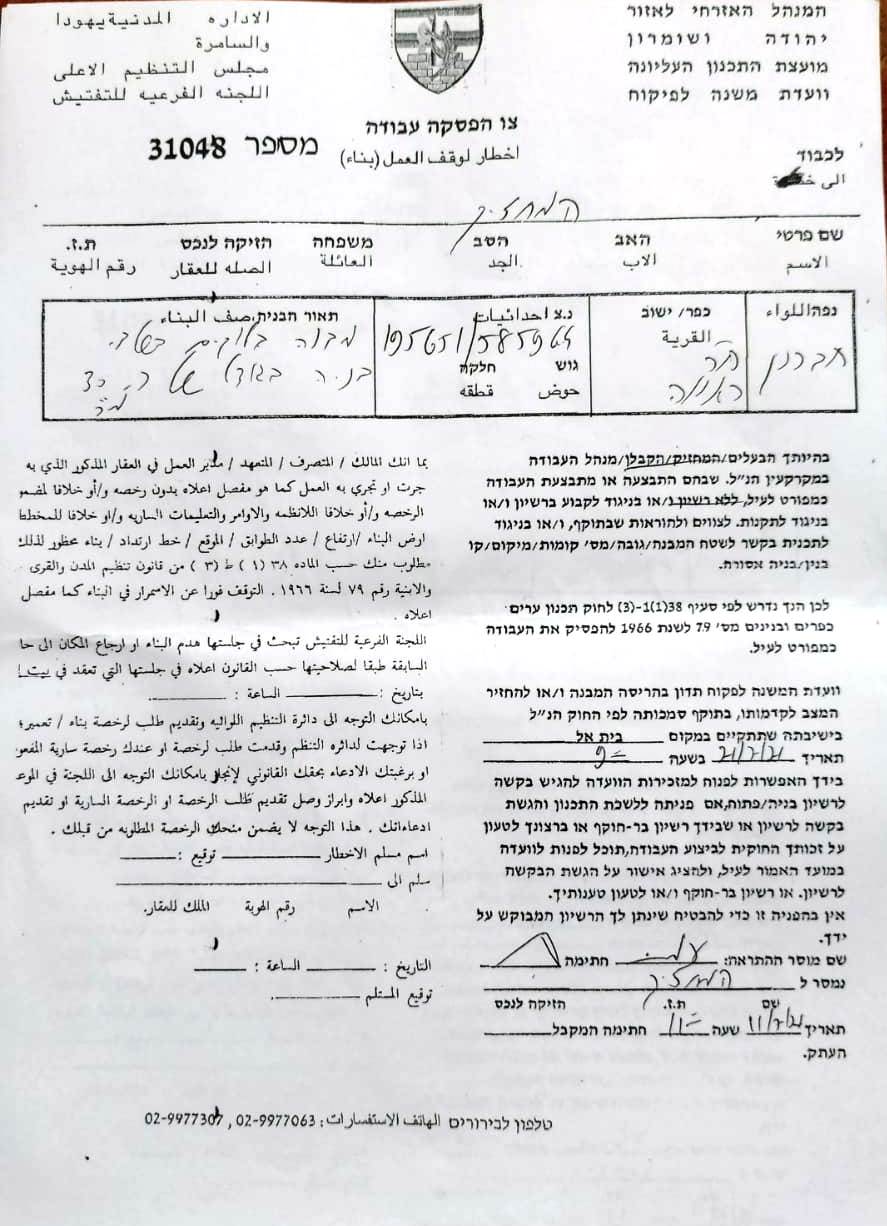 המנהל האזרחי לאזור
יהודה ושומרון
מועצת התכנון העליונה
וועדת משנה לפיקוח
الاداره المدنية يهودا
والسامرة
مجلس التنظيم الاعلى
اللجنه الفرعيه للتفتيش
צו הפסקה עבודה
اخطار لوقف العمل (بناء)
מספר 31048
לכבוד
الى
המחזיק
שם פרטי האב הסב משפחה הזיקה לנכס ת.ז.
الاسم الاب الجد العائلة الصله للعقار رقم الهوية
נפה/اللواء כפר/ ישוב נ.צ احداثيات תאור הבנית.صف البناء
חברון
القرية
195651/585964
גוש חלקה
حوض قطقه
מבנה בלוקים בשלבי
בניה בגודל של
בהיותך הבעלים/המחזיק/הקבלן/מנהל העבודה
במקרקעין הנ"ל. שבהם התבצעה או מתבצעת העבודה
כמפורט לעיל, ללא רשיון ו/או בניגוד לקבוע ברשיון ו/או
בניגוד לתקנות. לצווים ולהוראות שבתוקף, ו/או בניגוד
לתכנית בקשר לשטח המבנה/גובה/מס' קומות/מיקום/קו
בנין/בניה אסורה.
לכן הנך נדרש לפי סעיף 38(1)-(3) לחוק תכנון ערים
כפרים ובנינים מס' 79 לשנת 1966 להפסיק את העבודה
כמפורט לעיל.
וועדת המשנה לפקוח תדון בהריסה המבנה ו/או להחזיר
המצב לקדמותו, בתוקף סמכותה לפי החוק הנ"ל
בישיבתה שתתקיים במקום בית אל
תאריך בשעה
בידך האפשרות לפנות למזכירות הוועדה להגיש בקשה
לרשיון בניה/פתוח,אם פניתה ללשכת התכנון והגשת
בקשה לרשיון או שבידך רשיון בר-חוקף או ברצונך לטעון
על זכותך החוקית לביצוע העבודה,תוכל לפנות לוועדה
במועד האמור לעיל, ולהציג אישור על הגשת הבקשה
לרשיון. או רשיון בר-חוקף ו/או לטעון טענותיך.
אין בהפניה זו כדי להבטיח שינתן לך הרשיון המבוקש על
ידך.
שם מוסר ההתראה: חתימה
נמסר ל המחזיק
שם ת.ז. הזיקה לנכס
תאריך שעה חתימה המקבל
העתק.
بما انك المالك / المتصرف / المتعهد / مدير العمل في العقار المذكور الذي به
جرت او تجري به العمل كما هو مفصل اعلاه بدون رخصه و/أو خلافا لمضمو
الرخصه و/أو خلافا للانظمه والاوامر والتعليمات الساريه و/او خلافا للمخطط
ارض البناء /ارتفاع / عدد الطوابق / الموقع / خط ارتداد / بناء محظور لذلك
مطلوب منك حسب الماده ٣٨ (١) ط (٣) من قانون تنظيم المدن والقرى
والابنية رقم ٧٩ لسنة ١٩٦٦ . التوقف فورا عن الاسمرار في البناء كما مفصل
اعلاه .
اللجنة الفرعية للتفتيش تبحث في جلستها هدم البناء او ارجاع المكان الى حا
السابقة طبقا لصلاحيتها حسب القانون اعلاه في جلستها التي تعقد في بيت ا
بتاريخ : الساعة :
بامكانك التوجه الى دائرة التنظيم اللوائيه وتقديم طلب لرخصة بناء / تعمير؛
اذا توجهت لدائره التنظم وقدمت طلب لرخصة او عندك رخصة سارية المفعو
او برغبتك الادعاء بحقك القانوني لإنجاز بامكانك التوجه الى اللجنة في الموع
المذكور اعلاه وابراز وصل تقديم طلب الرخصة او الرخصة السارية او تقديم
ادعاءاتك . هذا التوجه لا يضمن منحك الرخصة المطلوبه من قبلك .
اسم مسلم الاخطار توقيع :
سلم الى
الاسم رقم الهوية الملك للعقار.
التاريخ : الساعة :
توقيع المستلم
טלפון לבירורים الهاتف الاستفسارات: 02-9977063 , 02-9977307